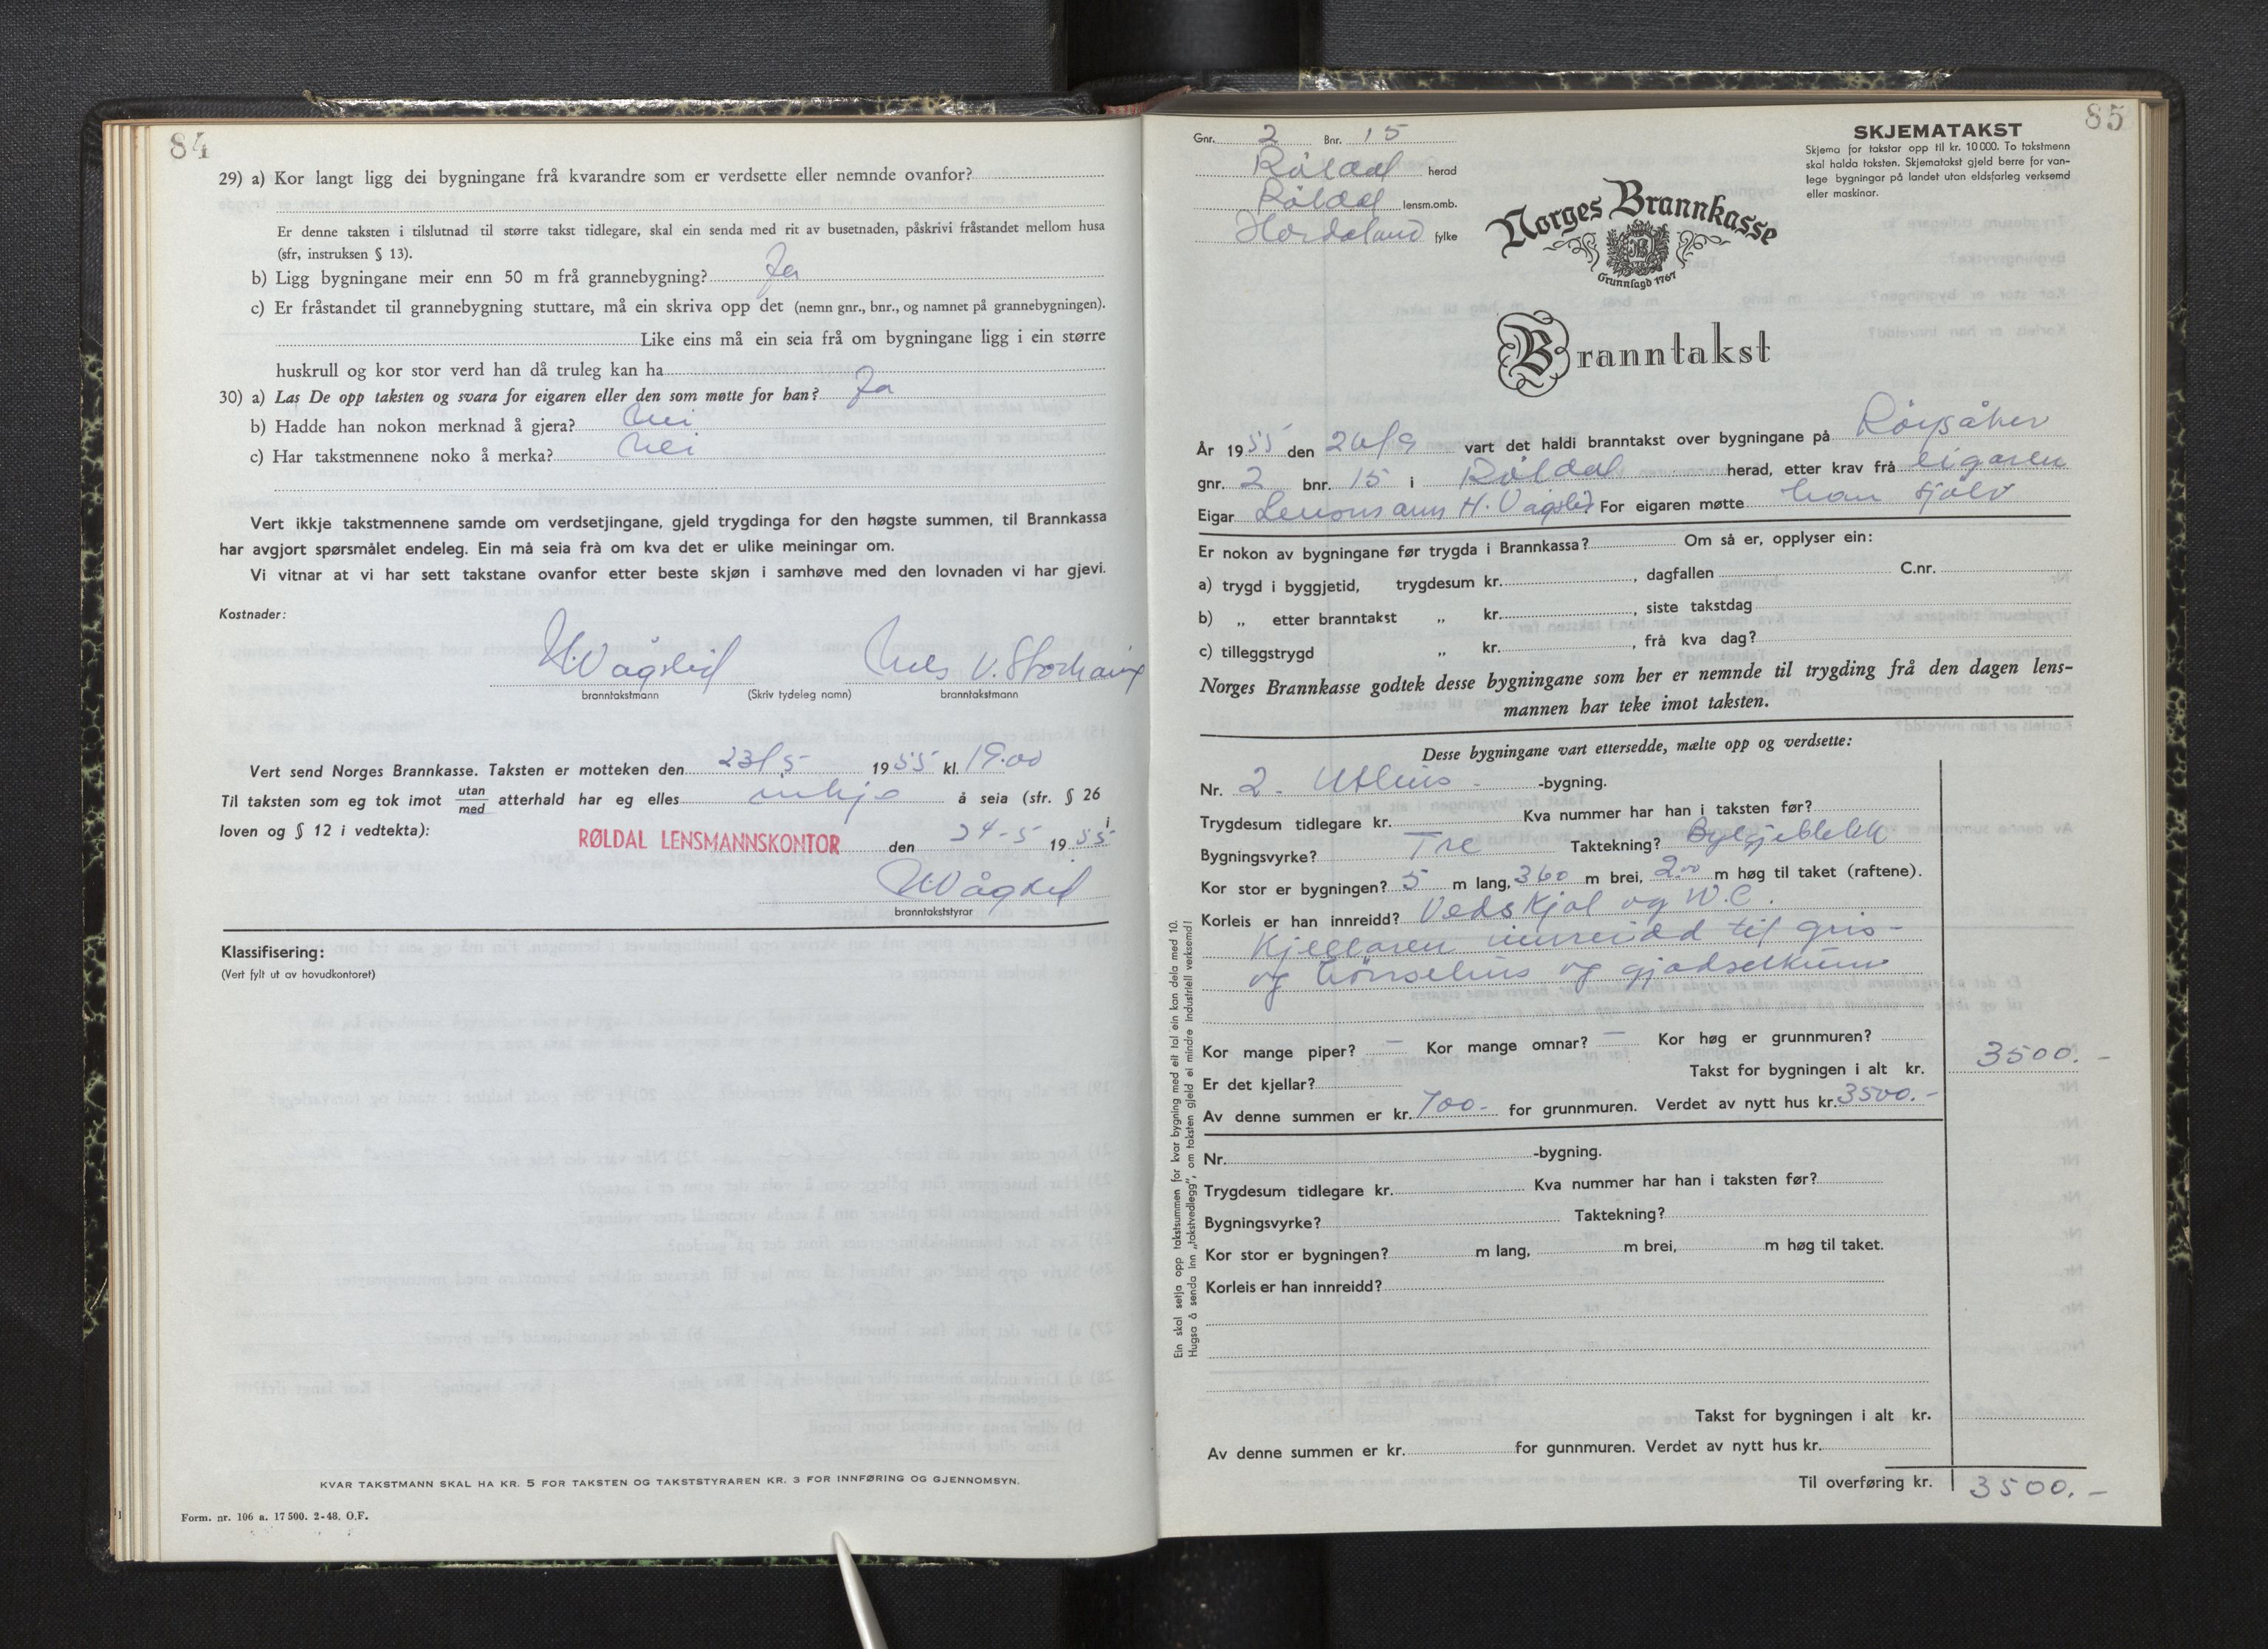 84
29) a) Kor langt ligg dei bygningane frå kvarandre som er verdsette eller nemnde ovanfor?
Er denne taksten i tilslutnad til større takst tidlegare, skal ein senda med rit av busetnaden, påskrivi fråstandet mellom husa
(sfr, instruksen § 13).
b) Ligg bygningane meir enn 50 m frå grannebygning? Ja
c) Er fråstandet til grannebygning stuttare, må ein skriva opp det (nemn gnr., bnr., og namnet på grannebygningen).
Like eins må ein seia frå om bygningane ligg i ein større
huskrull og kor stor verd han då truleg kan ha
30) a) Las De opp taksten og svara for eigaren eller den som møtte for han? Ja
b) Hadde han nokon merknad å gjera? Nei
c) Har takstmennene noko å merka? Nei
Vert ikkje takstmennene samde om verdsetjingane, gjeld trygdinga for den høgste summen, til Brannkassa
har avgjort spørsmålet endeleg. Ein må seia frà om kva det er ulike meiningar om.
Vi vitnar at vi har sett takstane ovanfor etter beste skjøn i samhøve med den lovnaden vi har gjevi.
Kostnader:
H Vågslid Nils V. Storhaug
branntakstmann (Skriv tydeleg namn) branntakstmann
Vert send Norges Brannkasse. Taksten er motteken den 23/5 1955 kl. 19.00
Til taksten som eg tok imot utan/med atterhald har eg elles inkje å seia (sfr. § 26 i
loven og § 12 i vedtekta):
RØLDAL LENSMANNSKONTOR den 24-5 1955
H Vågslid
branntakststyrar
Klassifisering:
(Vert fylt ut av hovudkontoret)
KVAR TAKSTMANN SKAL HA KR. 5 FOR TAKSTEN OG TAKSTSTYRAREN KR. 3 FOR INNFØRING OG GJENNOMSYN.
Form. nr. 106 a. 17 500. 2-48. O.F.
85
Gnr. 2 Bnr. 15
Röldal herad
Röldal lensm.omb.
Hordaland fylke
SKJEMATAKST
Skjema for takstar opp til kr. 10 000. To takstmenn
skal halda taksten. Skjematakst gjeld berre for van-
lege bygningar på landet utan eldsfarleg verksemd
eller maskinar.
Norges Brannkasse
Grunnlagd 1767
Branntakst
År 1955 den 26/9 vart det haldi branntakst over bygningane på
gnr. 2 bnr. 15 i Röldal herad, etter krav frå eigaren
Eigar Lensmann H. Vågslid For eigaren møtte han sjölv
Er nokon av bygningane før trygda i Brannkassa? Om så er, opplyser ein:
a) trygd i byggjetid, trygdesum kr. , dagfallen C.nr.
b) „ etter branntakst „ kr. , siste takstdag
c) tilleggstrygd „ kr. , frå kva dag?
Norges Brannkasse godtek desse bygningane som her er nemnde til trygding frå den dagen lens-
mannen har teke imot taksten.
Desse bygningane vart ettersedde, mælte opp og verdsette:
Nr. 2. Uthus -bygning.
Trygdesum tidlegare kr. Kva nummer har han i taksten før?
Bygningsvyrke? Tre Taktekning? Bylgjeblekk
Kor stor er bygningen? 5 m lang, 360 m brei, 2.00 m høg til taket (raftene).
Korleis er han innreidd? Vedskjol og W.C.
Kjellaren innreidd til gris-
og hönsehus og gjødselkum
Kor mange piper? — Kor mange omnar? — Kor høg er grunnmuren?
Er det kjellar? Takst for bygningen i alt kr. 3500.-
Av denne summen er kr. 700- for grunnmuren. Verdet av nytt hus kr. 3500.-
Nr. -bygning.
Trygdesum tidlegare kr. Kva nummer har han i taksten før?
Bygningsvyrke? Taktekning?
Kor stor er bygningen? m lang, m brei, m høg til taket.
Korleis er han innreidd?
Takst for bygningen i alt kr.
Av denne summen er kr. for gunnmuren. Verdet av nytt hus kr.
Til overføring kr. 3500.-
Ein skal setja opp takstsummen for kvar bygning med eit tal ein kan dela med 10.
Hugsa å senda inn „takstvedlegg", om taksten gjeld ei mindre industriell verksemd!